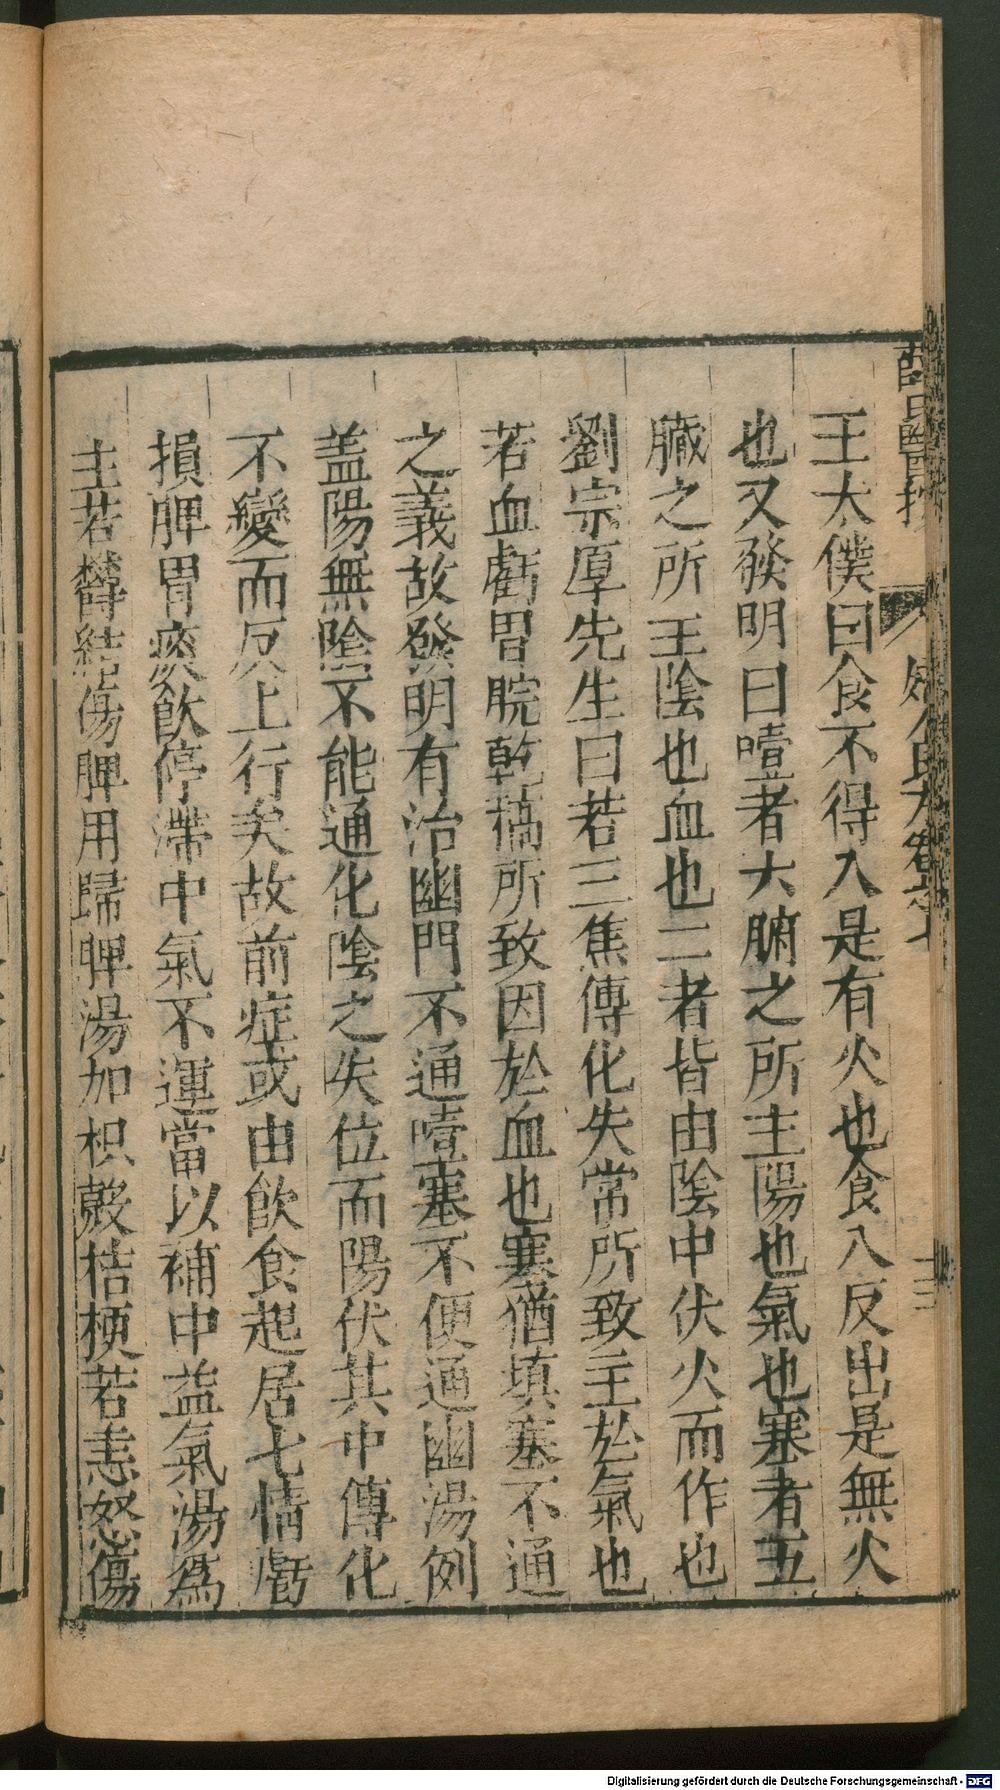 薛氏醫按 婦人良方卷之七 十三
王太僕曰食不得入是有火也食八反出是無火
也又發明曰噎者大腑之所主陽也氣也塞者五
臟之所主陰也血也二者皆由陰中伏火而作也
劉宗厚先生曰若三焦傳化失常所致主於氣也
若血虧胃脘乾槁所致因於血也塞猶填塞不通
之義故發明有治幽門不通噎塞不便通幽湯例
盖陽無陰不能通化陰之失位而陽伏其中傳化
不變而反上行矣故前症或由飲食起居七情虧
損脾胃痰飲停滯中氣不運當以補中益氣湯爲
主若欝結傷脾用歸脾湯加枳殼桔梗若恚怒傷
Digitalisierung gefördert durch die Deutsche Forschungsgemeinschaft - DFG